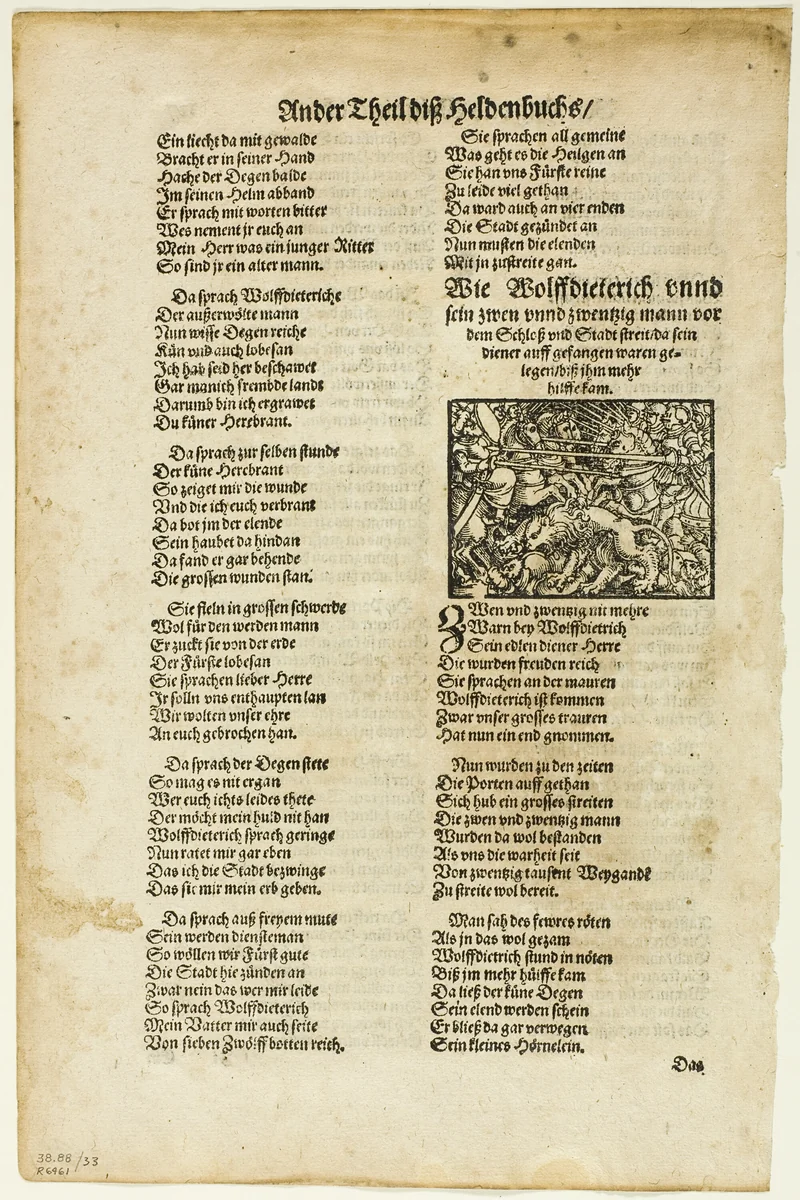 Ander Theil diß Heldenbuchs/
Ein liecht da mit gewalde
Bracht er in seiner Hand
Hache der Degen balde
Im seinen Helm abband
Er sprach mit worten bitter
Wes nement jr euch an
Mein Herr was ein junger Ritter
So sind jr ein alter mann.
Da sprach Wolffdieteriche
Der außerwölte mann
Nun wisse Degen reiche
Kün vnd auch lobesan
Ich hab seid her beschawet
Gar manich frembde lands
Darumb bin ich ergrawet
Du küner Herebrant.
Da sprach zur selben stunde
Der küne Herebrant
So zeiget mir die wunde
Vnd die ich euch verbrant
Da bot jm der elende
Sein haubet da hindan
Da fand er gar behende
Die grossen wunden stan.
Sie fieln in grossen schwerde
Wol für den werden mann
Er zuckt sie von der erde
Der Fürste lobesan
Sie sprachen lieber Herre
Ir solln vns enthaupten lan
Wir wolten vnser ehre
An euch gebrochen han.
Da sprach der Degen stete
So mag es nit ergan
Wer euch ichts leides thete
Der möcht mein huld nit han
Wolffdieterich sprach geringe
Nun ratet mir gar eben
Das ich die Stadt bezwinge
Das sie mir mein erb geben.
Da sprach auß freyem mute
Sein werden diensteman
So wöllen wir Fürst gute
Die Stadt hie zünden an
Zwar nein das wer mir leide
So sprach Wolffdieterich
Mein Vatter mir auch seite
Von sieben Zwölffbotten reich.
Sie sprachen all gemeine
Was geht es die Heilgen an
Sie han vns Fürste reine
Zu leide viel gethan
Da ward auch an vier enden
Die Stadt gezündet an
Nun musten die elenden
Mit jn zu streite gan.
Wie Wolffdieterich vnnd
sein zwen vnnd zwentzig mann vor
dem Schloß vnd Stadt streit/da sein
diener auff gefangen waren ge-
legen/biß jhm mehr
hilffe kam.
ZWen vnd zwentzig nit mehre
Warn bey Wolffdietrich
Sein edlen diener Herre
Die wurden freuden reich
Sie sprachen an der mauren
Wolffdieterich ist kommen
Zwar vnser grosses trauren
Hat nun ein end gnommen.
Nun wurden zu den zeiten
Die Porten auff gethan
Sich hub ein grosses streiten
Die zwen vnd zwentzig mann
Wurden da wol bestanden
Als vns die warheit seit
Von zwentzig tausent Weygande
Zu streite wol bereit.
Man sah des fewres röten
Als jn das wol gezam
Wolffdietrich stund in nöten
Biß jm mehr hülffe kam
Da ließ der küne Degen
Sein elend werden schein
Er bließ da gar verwegen
Sein kleines Hörnelein.
Das
38.88/33
R6961